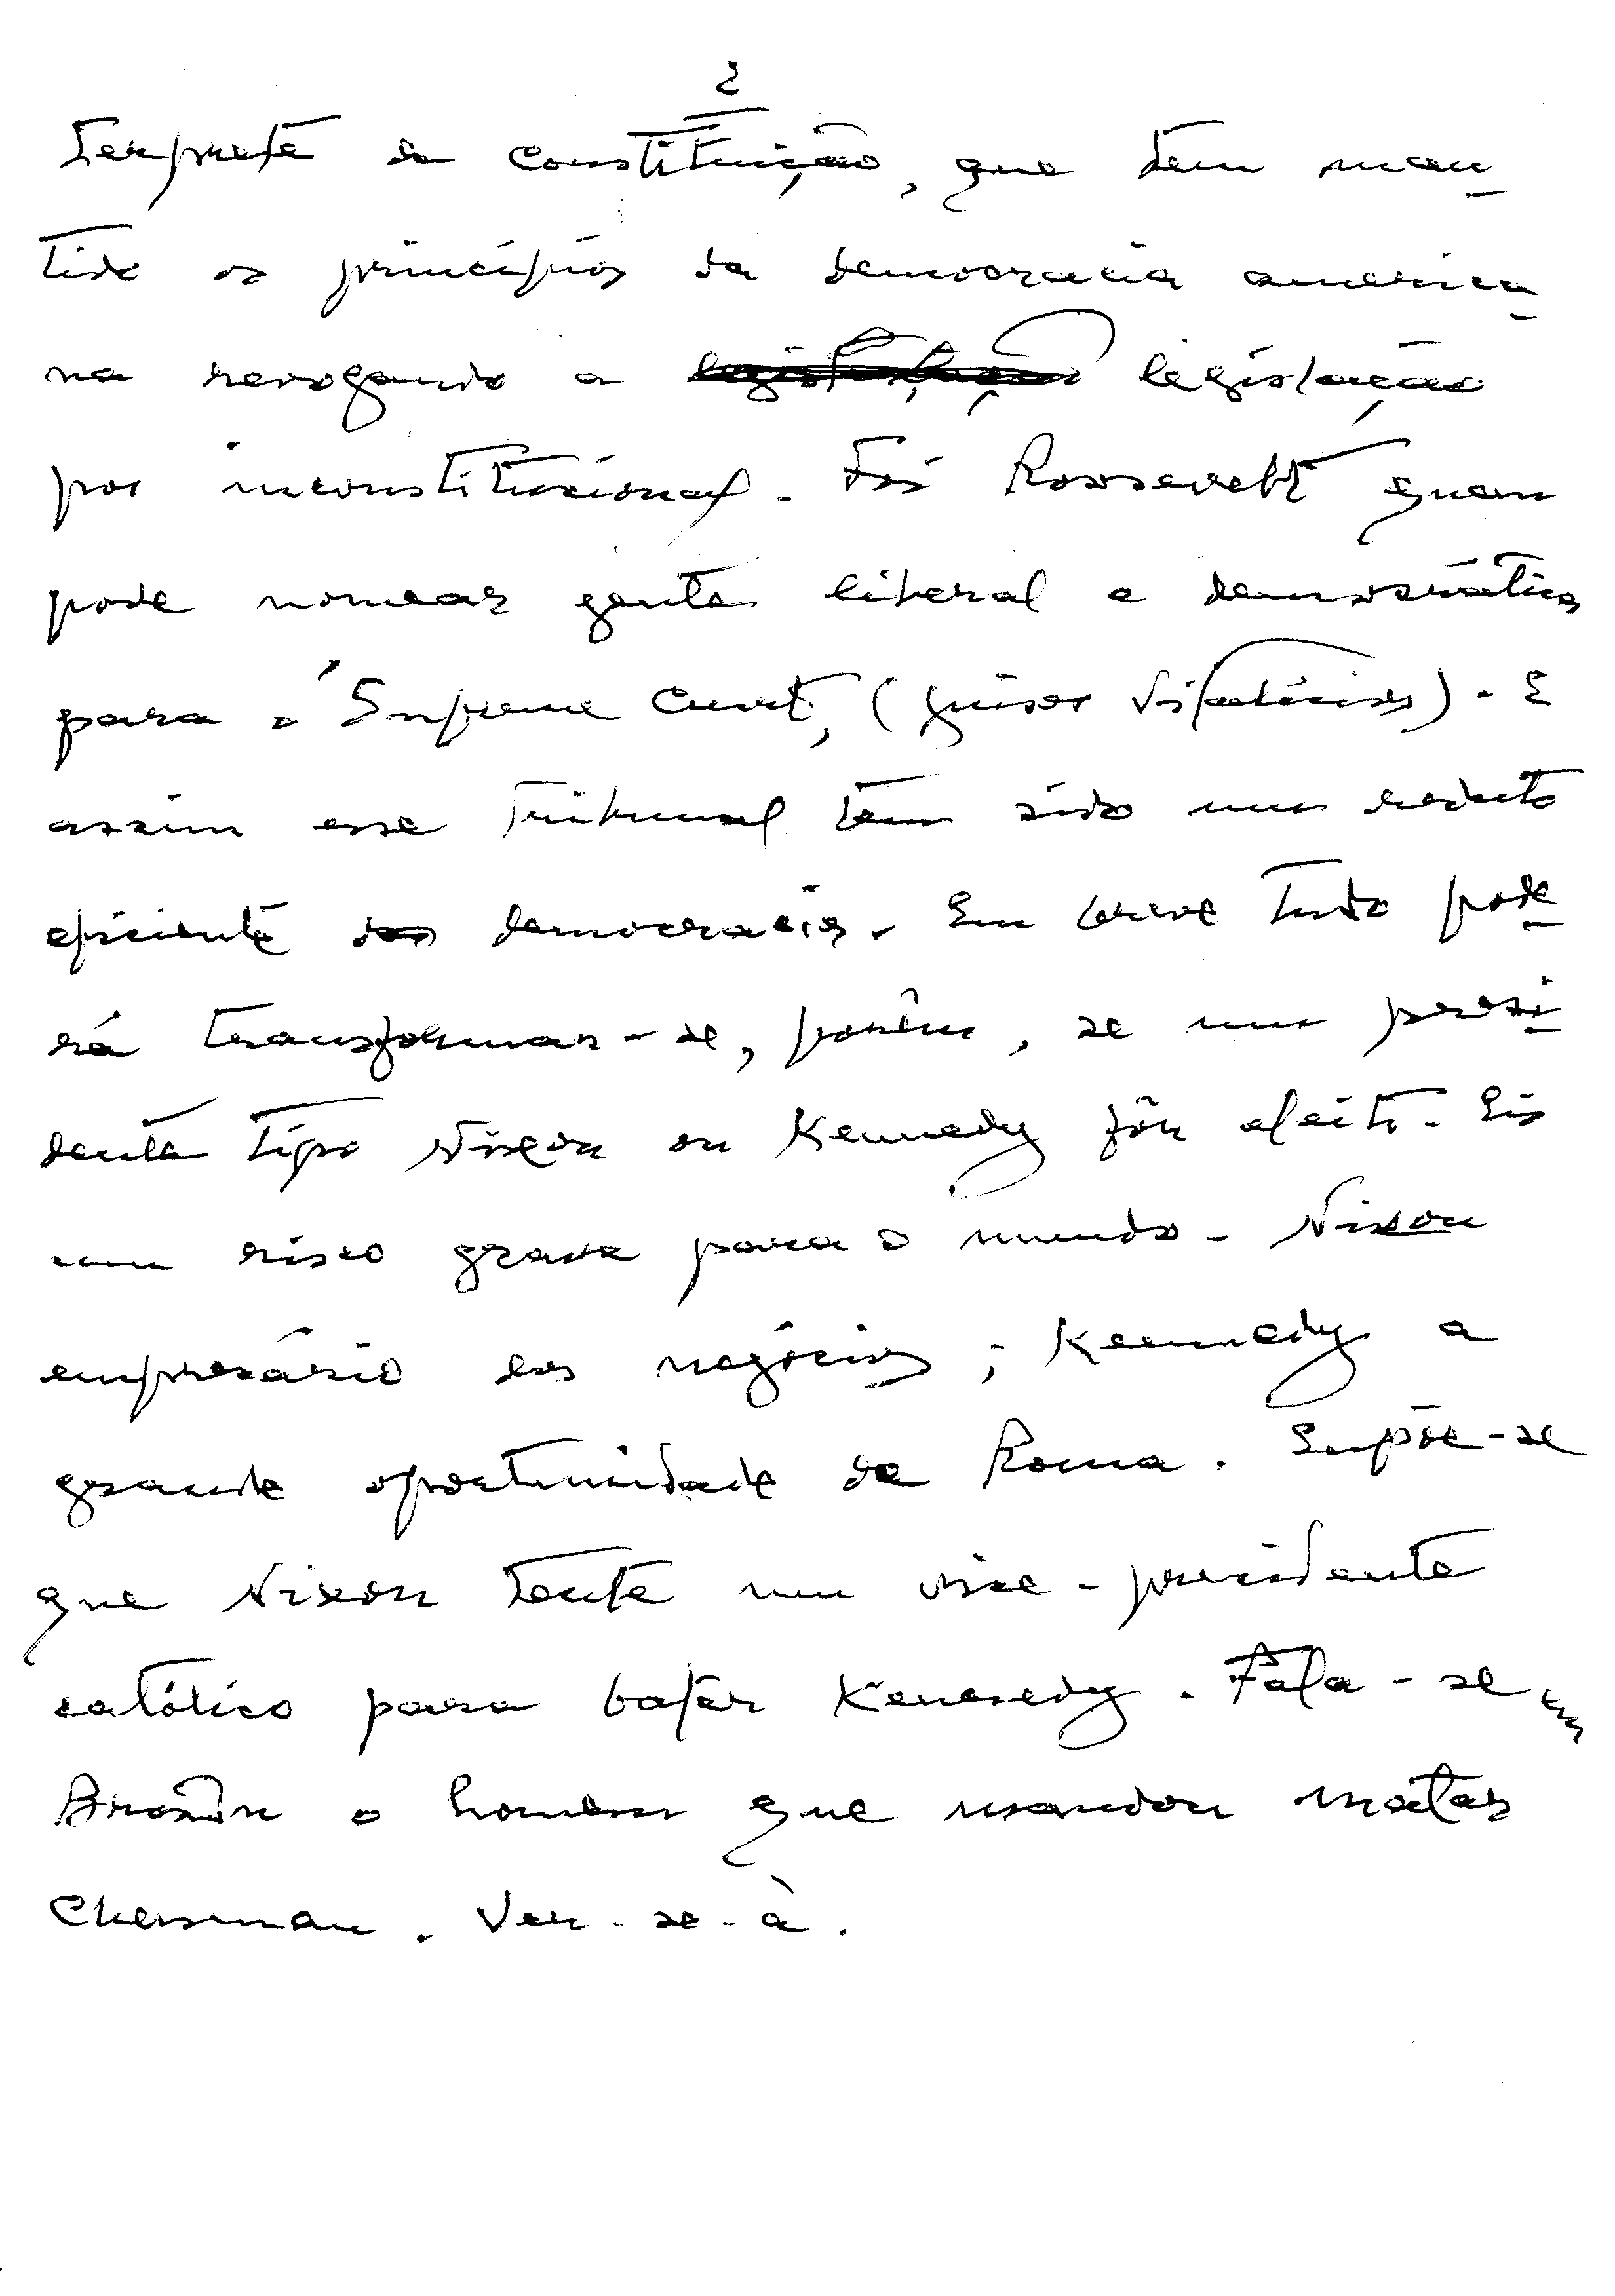 2
terprete da constituição, que tem man-
tido os princípios da democracia america-
na revogando a legislação
por inconstitucional. Foi Roosevelt quem
pode nomear gente liberal e democrática
para a Supreme Court, (juizes vitalícios). E
assim esse Tribunal tem sido um reduto
eficiente da democracia. Em breve tudo pode-
rá transformar-se, porêm, se um presi-
dente tipo Nixon ou Kennedy fôr eleito. Eis
um risco grave para o mundo. Nixon
empresário dos negócios; Kennedy a
grande oportunidade de Roma. Supõe-se
que Nixon tente um vice-presidente
católico para bater Kennedy. Fala-se em
Brown o homem que mandou matar
Chessman. Ver-se-à.